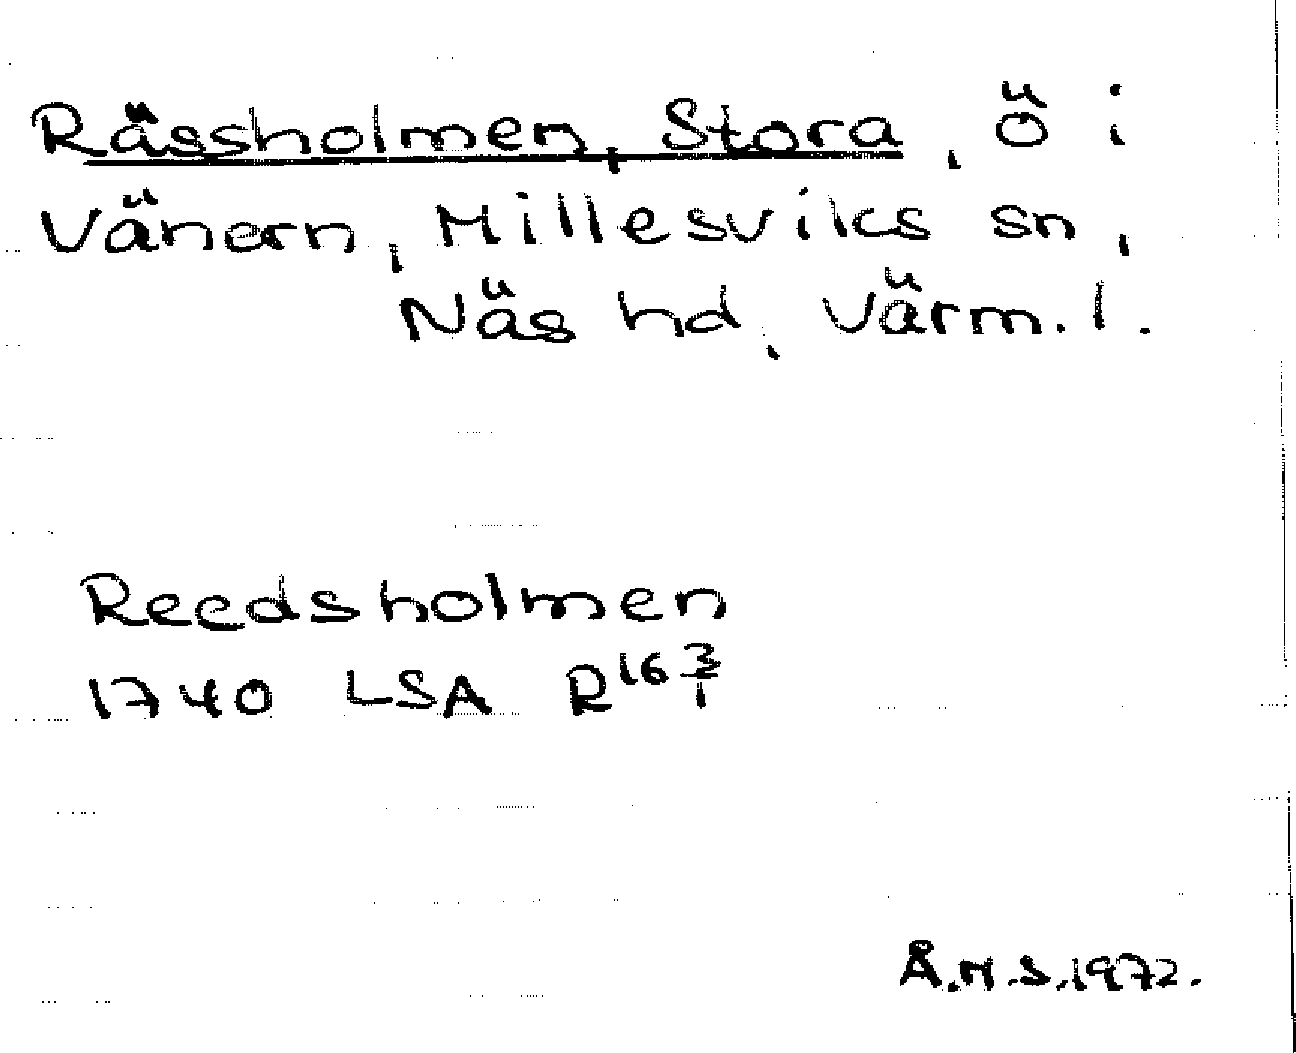 Rässholmen, Stora, ö i
Vänern, Millesviks sn,
Näs hd, Värm. l.
Reedsholmen
1740 LSA R 16 3/1
Å.M.S. 1972.